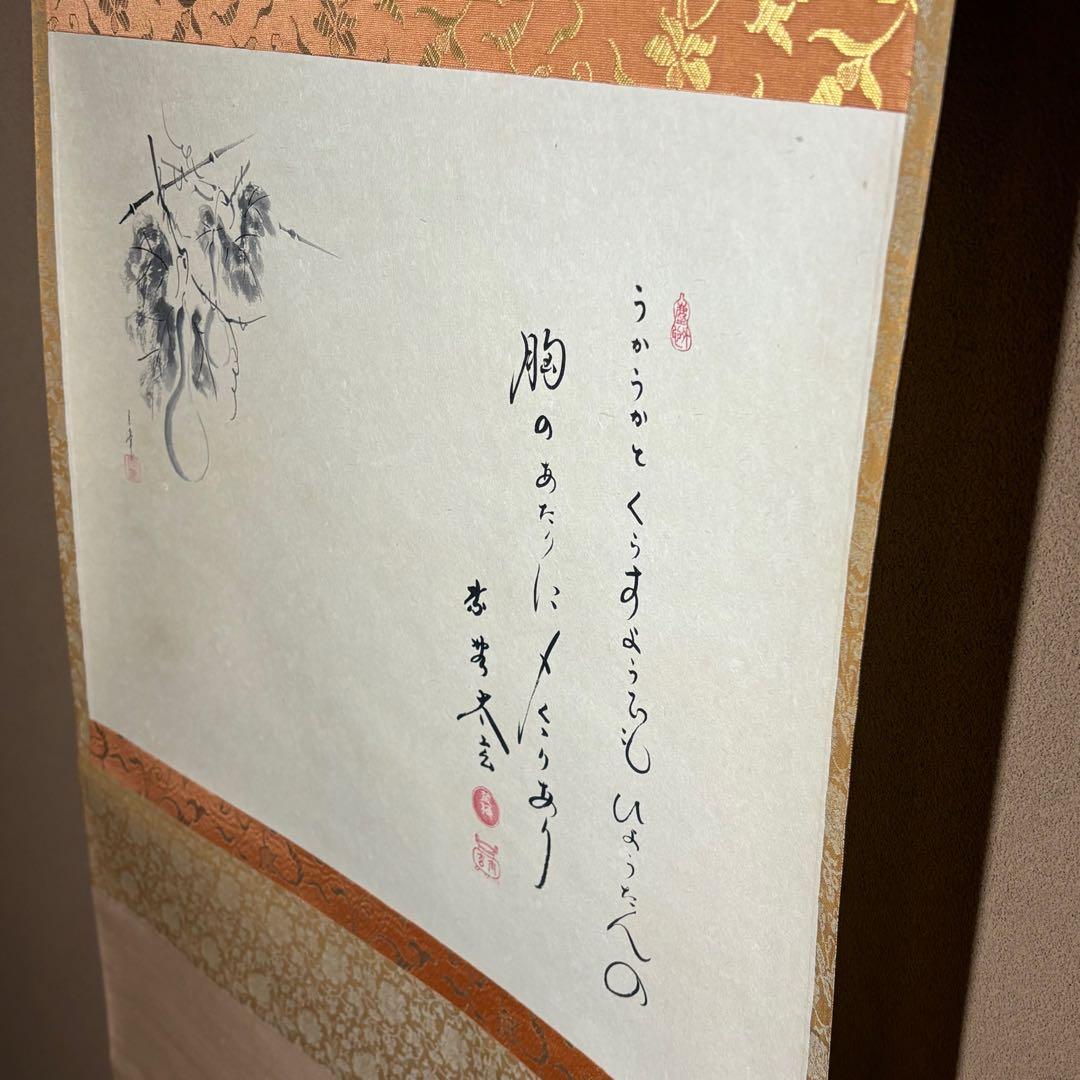 うかうかとくらすようでもひょうたんの
胸のあたりに〆くゝりあり